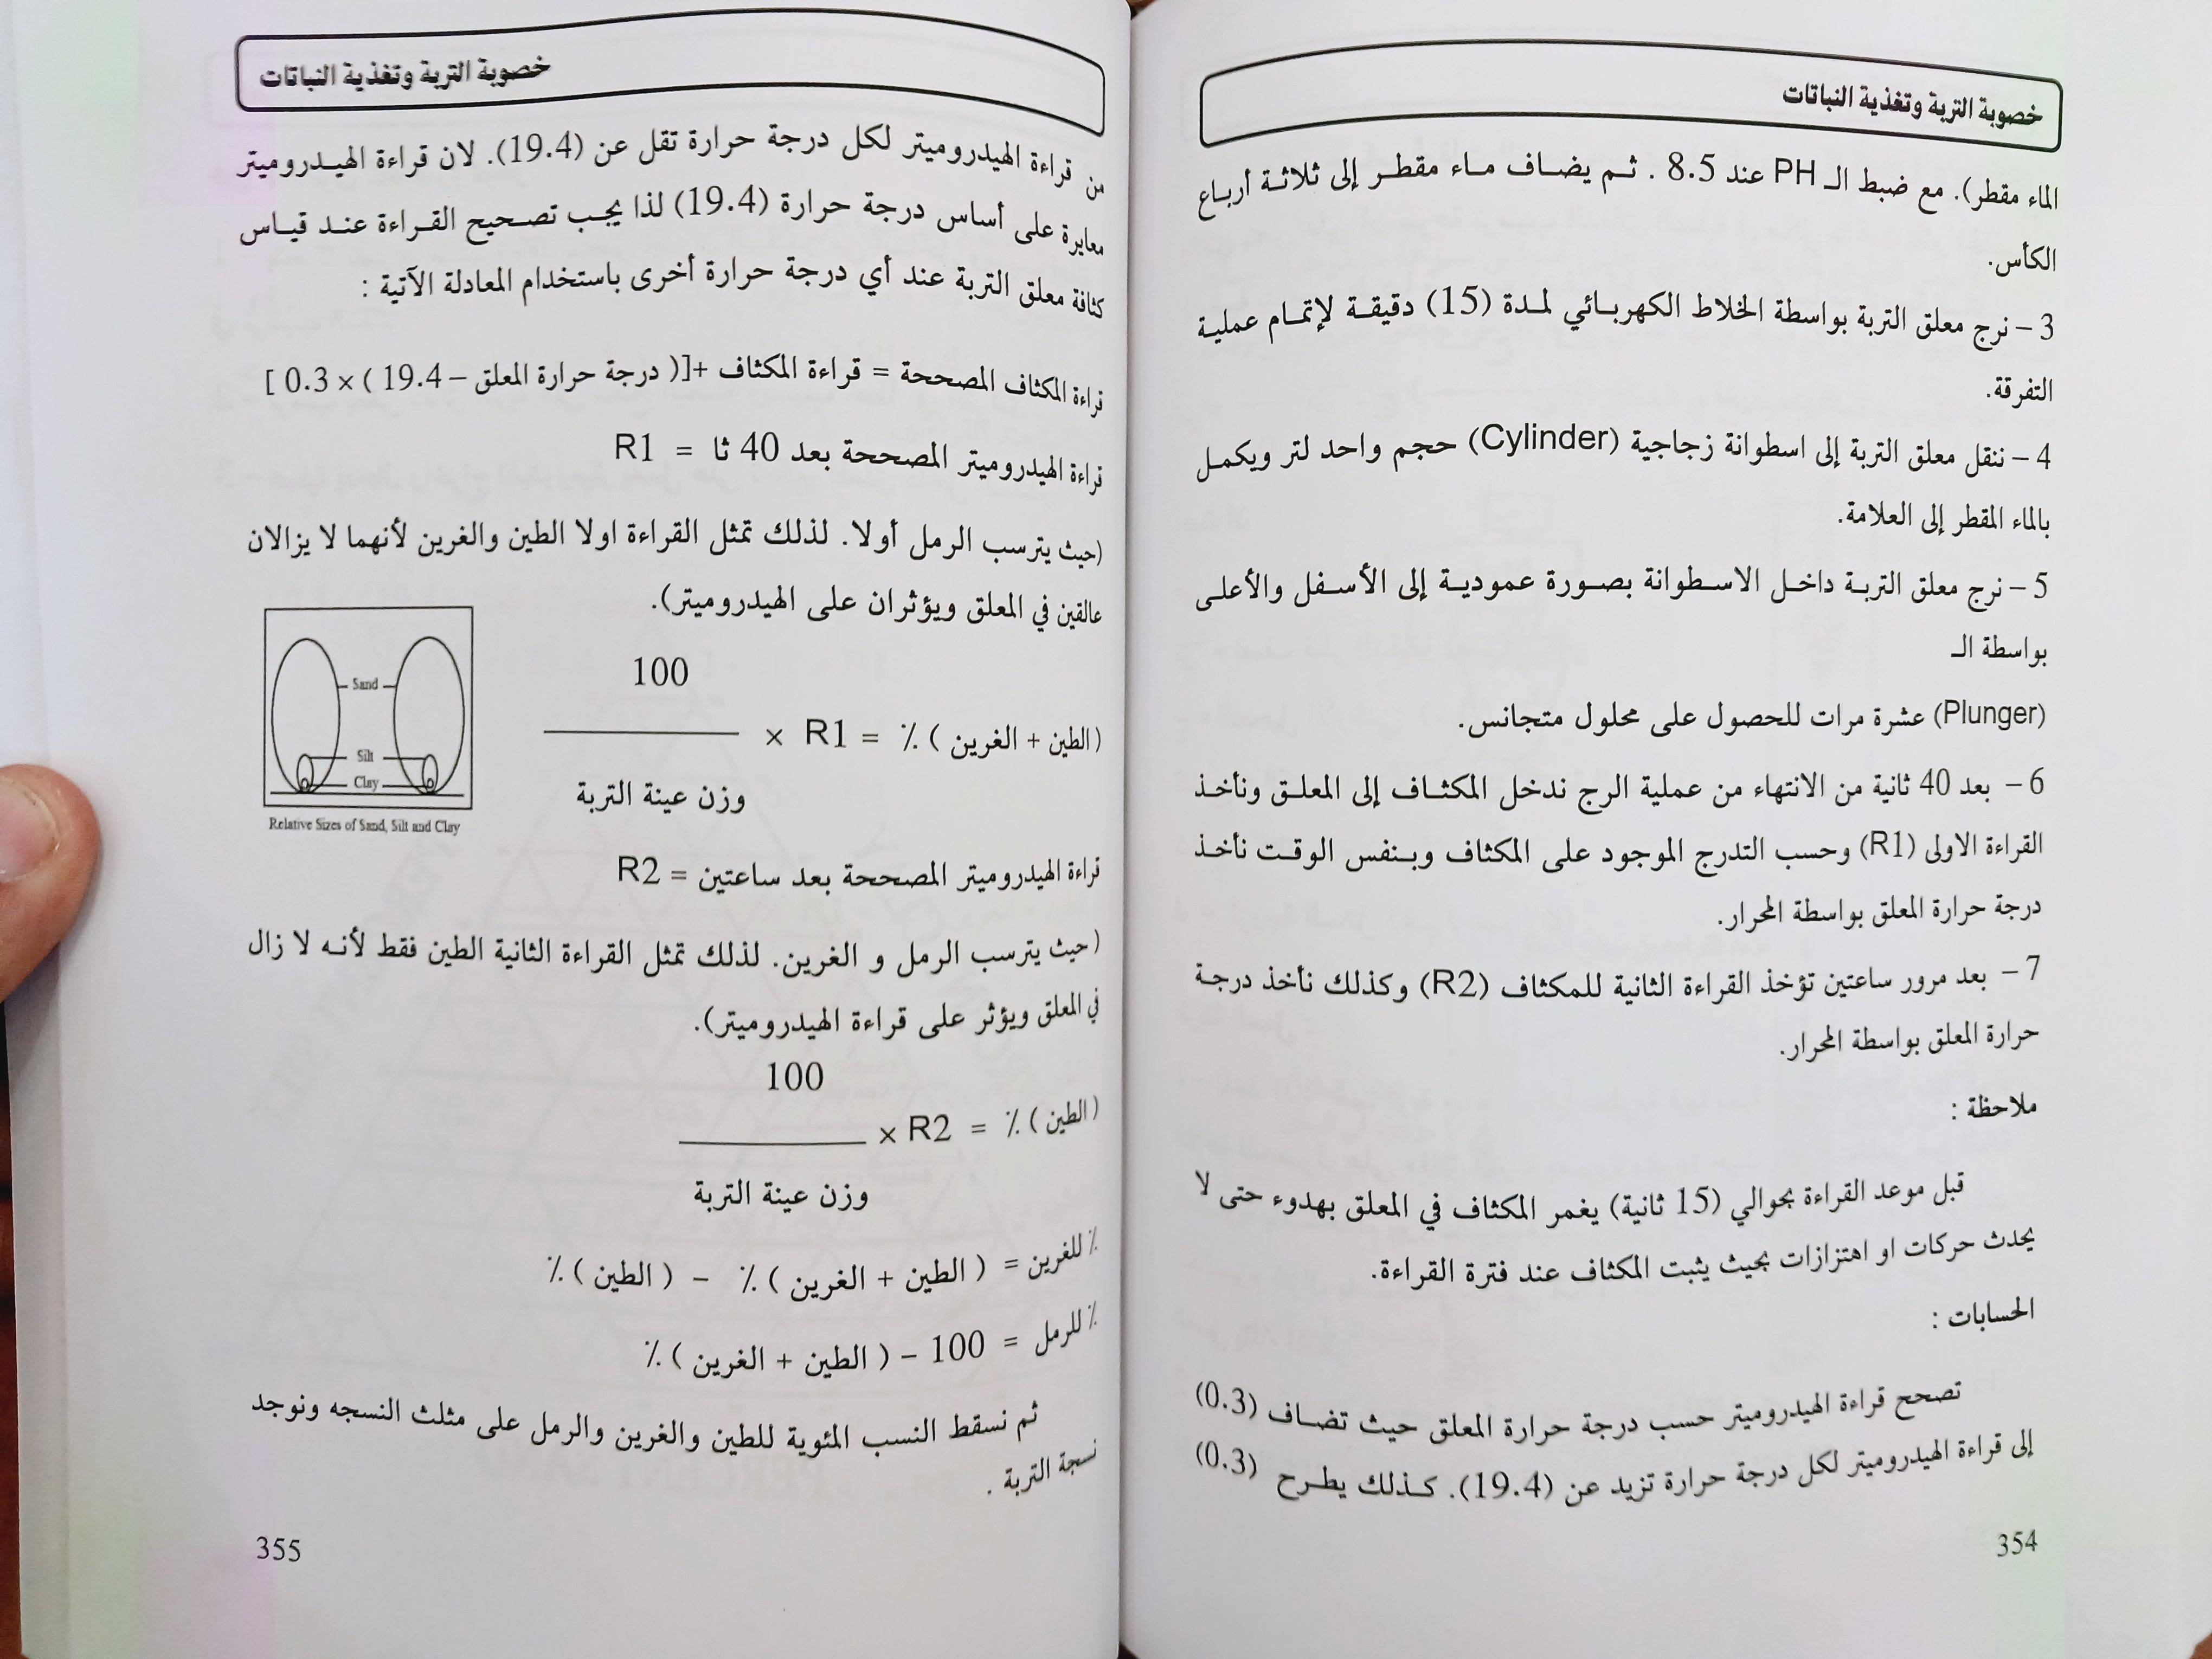 خصوبة التربة وتغذية النباتات
الماء مقطر). مع ضبط الـ PH عند 8.5 . ثم يضاف ماء مقطر إلى ثلاثة أرباع
الكأس.
3 – نرج معلق التربة بواسطة الخلاط الكهربائي لمدة (15) دقيقة لإتمام عملية
التفرقة.
4 – ننقل معلق التربة إلى اسطوانة زجاجية (Cylinder) حجم واحد لتر ويكمل
بالماء المقطر إلى العلامة.
5 – نرج معلق التربة داخل الاسطوانة بصورة عمودية إلى الأسفل والأعلى
بواسطة الـ
(Plunger) عشرة مرات للحصول على محلول متجانس.
6 – بعد 40 ثانية من الانتهاء من عملية الرج ندخل المكثاف إلى المعلق ونأخذ
القراءة الاولى (R1) وحسب التدرج الموجود على المكثاف وبنفس الوقت نأخذ
درجة حرارة المعلق بواسطة المحرار.
7 – بعد مرور ساعتين تؤخذ القراءة الثانية للمكثاف (R2) وكذلك نأخذ درجة
حرارة المعلق بواسطة المحرار.
ملاحظة :
قبل موعد القراءة بحوالي (15 ثانية) يغمر المكثاف في المعلق بهدوء حتى لا
يحدث حركات او اهتزازات بحيث يثبت المكثاف عند فترة القراءة.
الحسابات :
تصحح قراءة الهيدروميتر حسب درجة حرارة المعلق حيث تضاف (0.3)
إلى قراءة الهيدروميتر لكل درجة حرارة تزيد عن (19.4). كذلك يطرح (0.3)
354
خصوبة التربة وتغذية النباتات
من قراءة الهيدروميتر لكل درجة حرارة تقل عن (19.4). لان قراءة الهيدروميتر
معايرة على أساس درجة حرارة (19.4) لذا يجب تصحيح القراءة عند قياس
كثافة معلق التربة عند أي درجة حرارة أخرى باستخدام المعادلة الآتية :
قراءة المكثاف المصححة = قراءة المكثاف +[( درجة حرارة المعلق – 19.4 ) × 0.3 ]
قراءة الهيدروميتر المصححة بعد 40 ثا = R1
(حيث يترسب الرمل أولا. لذلك تمثل القراءة اولا الطين والغرين لأنهما لا يزالان
عالقين في المعلق ويؤثران على الهيدروميتر).
Sand
Silt
Clay
Relative Sizes of Sand, Silt and Clay
100
(الطين + الغرين ) ٪ = R1 × ـــــــــــ
وزن عينة التربة
قراءة الهيدروميتر المصححة بعد ساعتين = R2
( حيث يترسب الرمل و الغرين. لذلك تمثل القراءة الثانية الطين فقط لأنه لا زال
في المعلق ويؤثر على قراءة الهيدروميتر).
100
( الطين ) ٪ = R2 × ـــــــــــ
وزن عينة التربة
٪ للغرين = ( الطين + الغرين ) ٪ – ( الطين ) ٪
٪ للرمل = 100 – ( الطين + الغرين ) ٪
ثم نسقط النسب المئوية للطين والغرين والرمل على مثلث النسجه ونوجد
نسجة التربة .
355